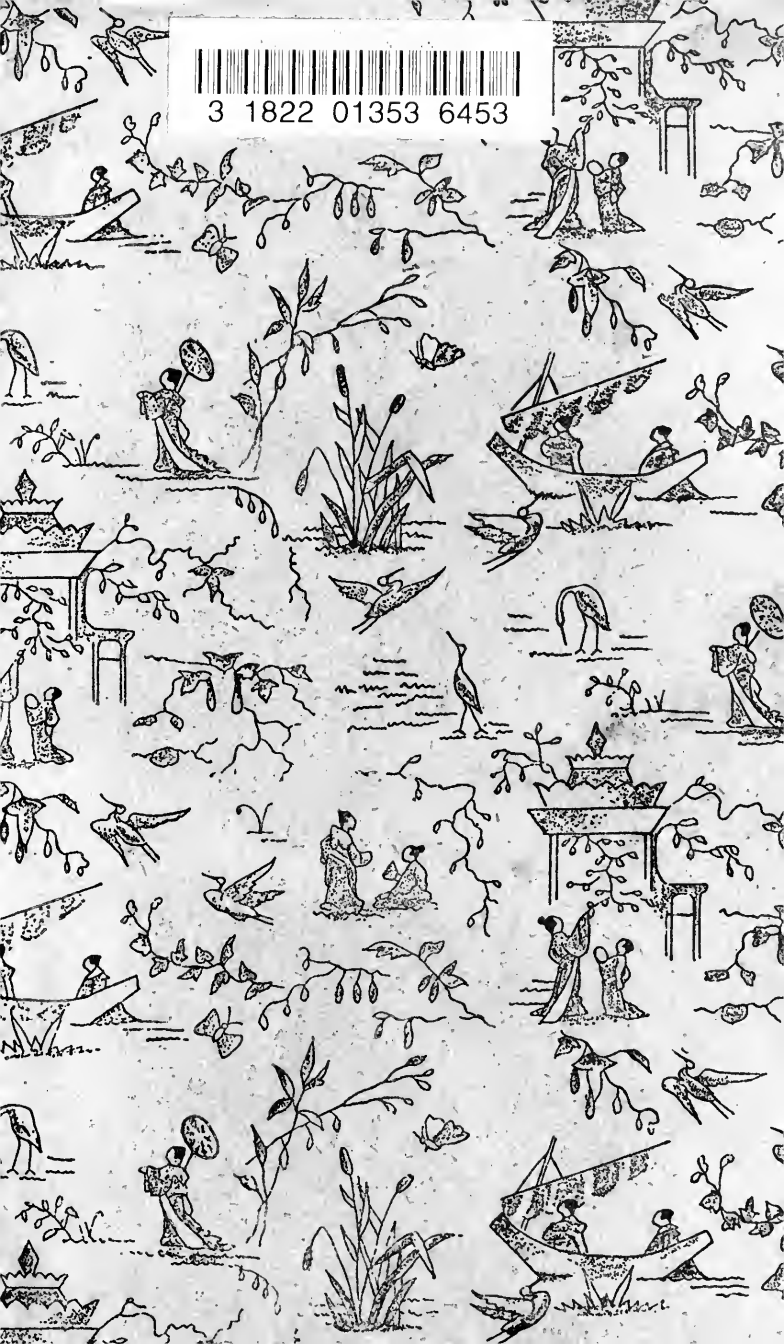 3 1822 01353 6453